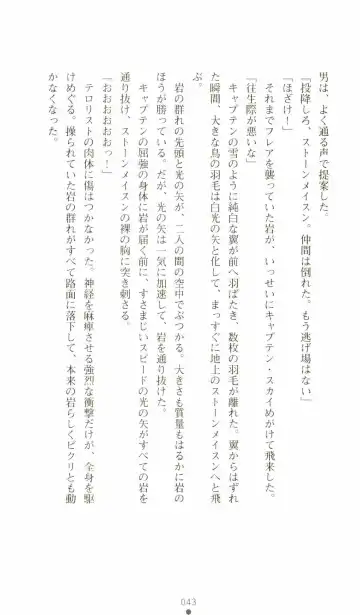 男は、よく通る声で提案した。
『投降しろ、ストーンメイスン。仲間は倒れた。もう逃げ場はない』
「ほざけ！」
それまでフレアを襲っていた岩が、いっせいにキャプテン・スカイめがけて飛来した。
『往生際が悪いな』
キャプテンの雪のように純白な翼が前へ羽ばたき、数枚の羽毛が離れた。翼からはずれ
た瞬間、大きな鳥の羽毛は白光の矢と化して、まっすぐに地上のストーンメイスンへと飛
ぶ。
岩の群れの先頭と光の矢が、二人の間の空中でぶつかる。大きさも質量もはるかに岩の
ほうが勝っている。だが、光の矢は一気に加速して、岩を通り抜けた。
キャプテンの屈強の身体に岩が届く前に、すさまじいスピードの光の矢がすべての岩を
通り抜け、ストーンメイスンの裸の胸に突き刺さる。
「おおおおおおっ！」
テロリストの肉体に傷はつかなかった。神経を麻痺させる強烈な衝撃だけが、全身を駆
けめぐる。操られていた岩の群れがすべて路面に落下して、本来の岩らしくピクリとも動
かなくなった。
043